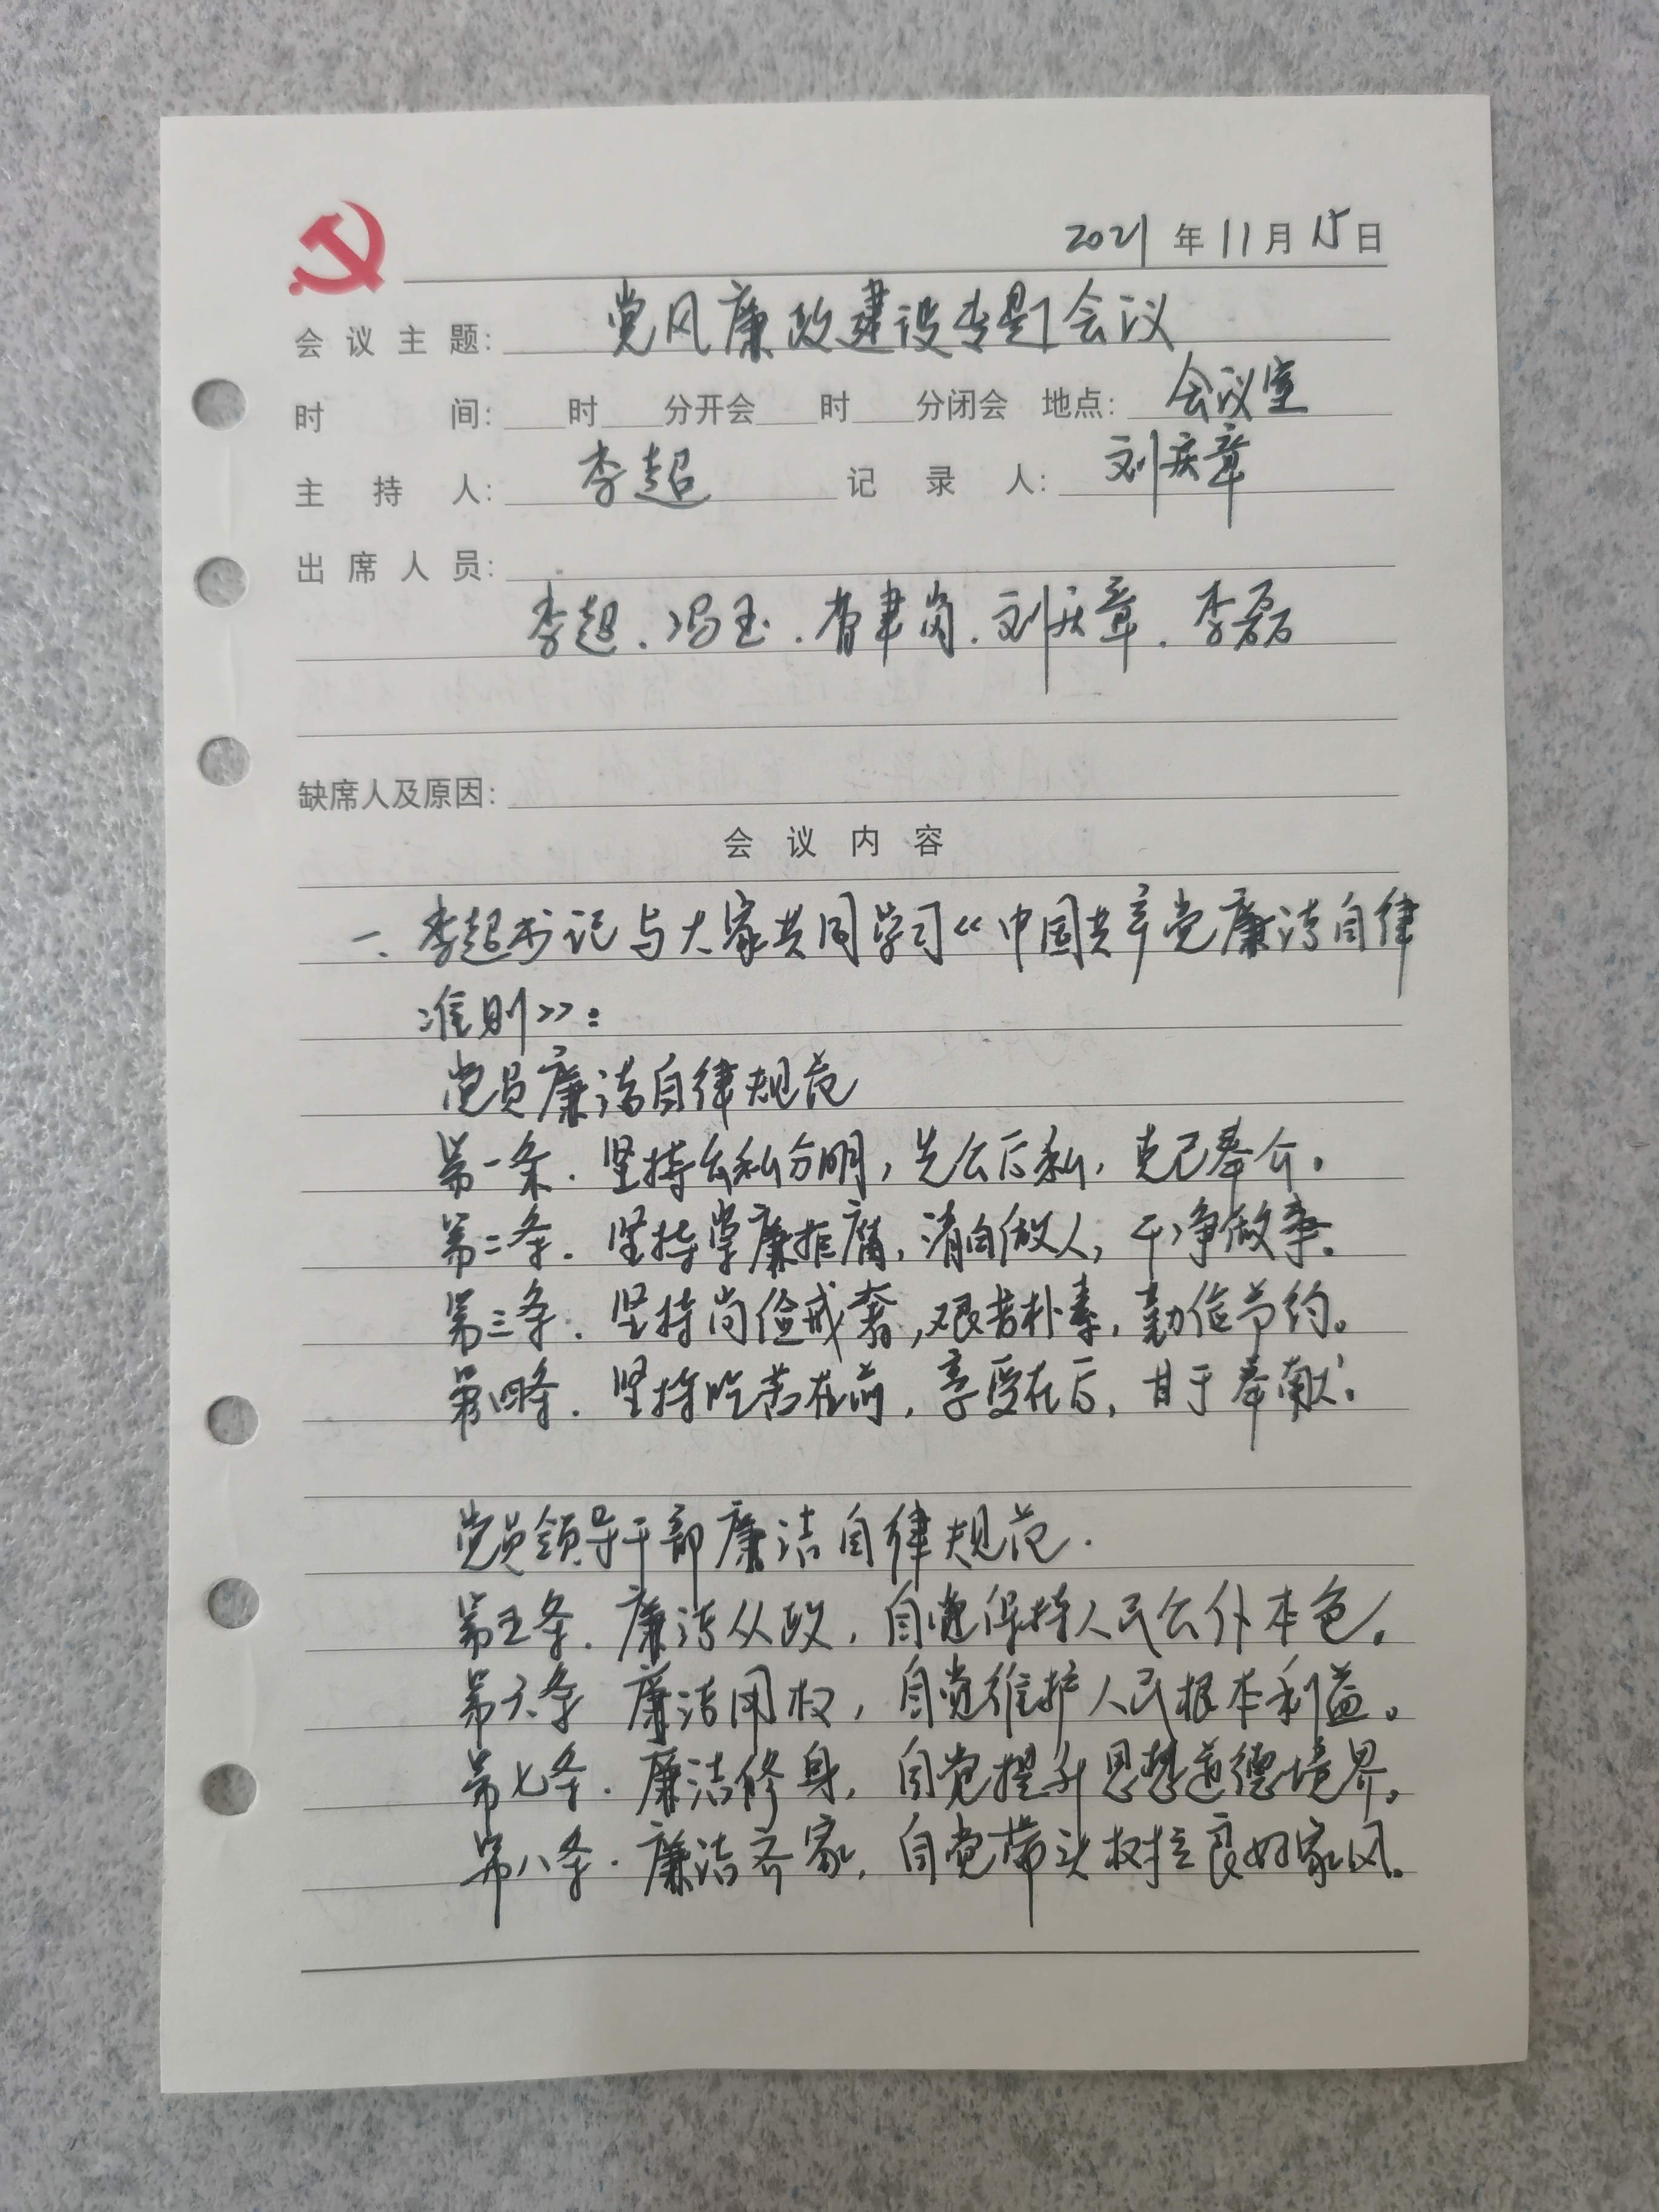 2021 年 11 月 15 日
会 议 主 题: 党风廉政建设专题会议
时 间: 时 分开会 时 分闭会 地点: 会议室
主 持 人: 李超 记 录 人: 刘庆章
出 席 人 员:
李超、冯玉、 刘庆章、李磊
缺席人及原因:
会 议 内 容
一、李超书记与大家共同学习《中国共产党廉洁自律
准则》:
党员廉洁自律规范
第一条. 坚持公私分明,先公后私,克己奉公。
第二条. 坚持崇廉拒腐,清白做人,干净做事。
第三条. 坚持尚俭戒奢,艰苦朴素,勤俭节约。
第四条. 坚持吃苦在前,享受在后,甘于奉献。
党员领导干部廉洁自律规范.
第五条. 廉洁从政,自觉保持人民公仆本色。
第六条 廉洁用权,自觉维护人民根本利益。
第七条. 廉洁修身,自觉提升思想道德境界。
第八条. 廉洁齐家,自觉带头树立良好家风。